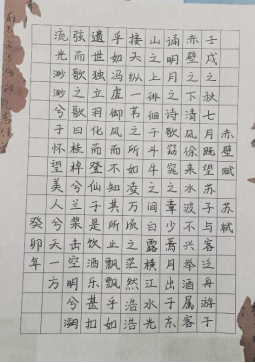 赤壁赋 苏轼
壬戌之秋七月既望苏子与客泛舟游于
赤壁之下清风徐来水波不兴举酒属客
诵明月之诗歌窈窕之章少焉月出于东
山之上徘徊于斗牛之间白露横江水光
接天纵一苇之所如凌万顷之茫然浩浩
乎如冯虚御风而不知其所止飘飘乎如
遗世独立羽化而登仙于是饮酒乐甚扣
弦而歌之歌曰桂棹兮兰桨击空明兮溯
流光渺渺兮予怀望美人兮天一方
癸卯年